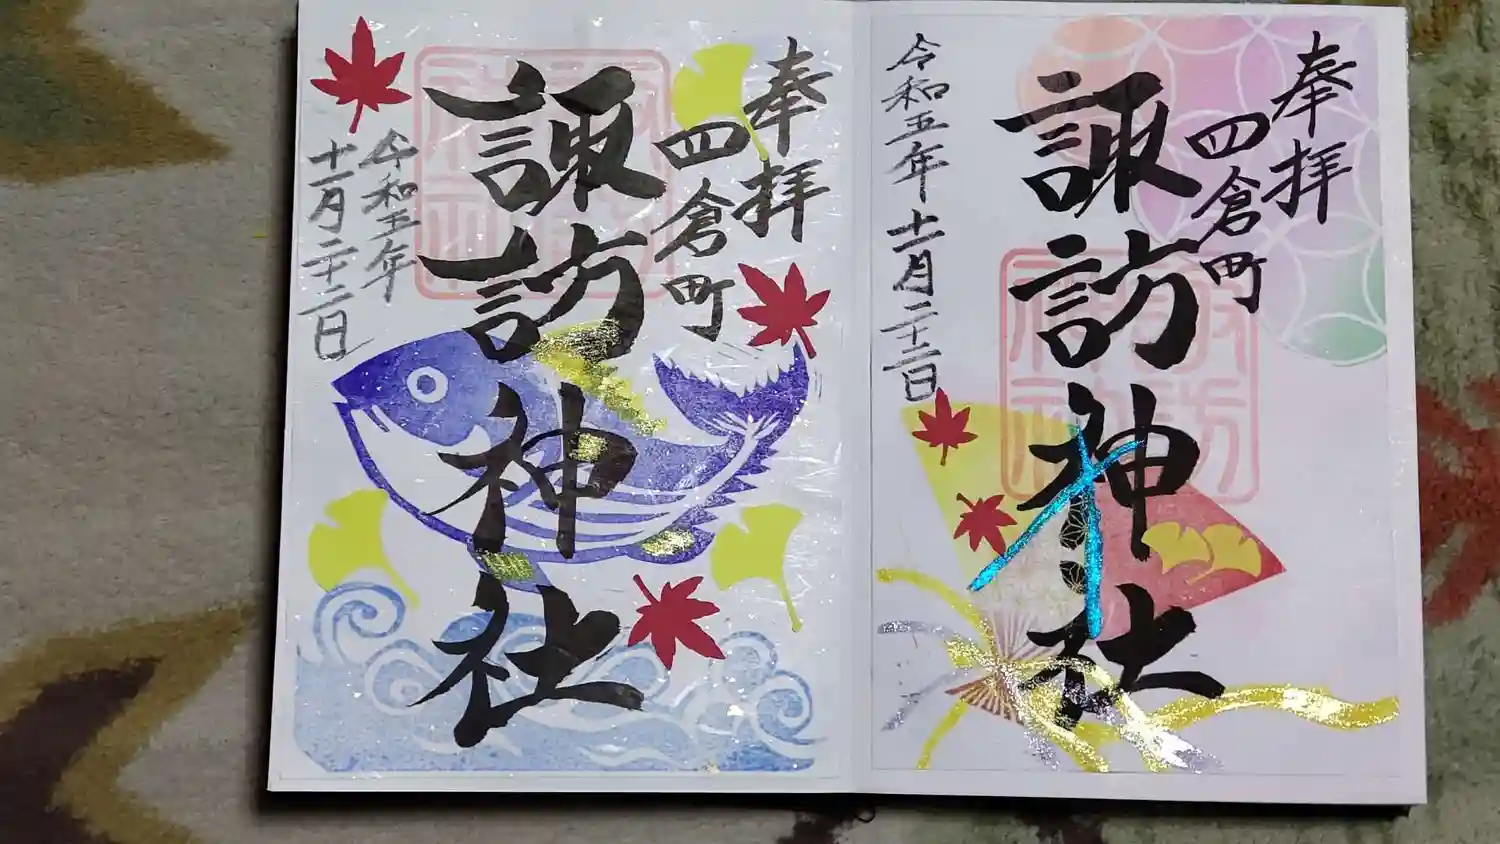 奉拝
四倉町
諏訪神社
令和五年十一月二十二日
奉拝
四倉町
諏訪神社
令和五年
十一月二十二日